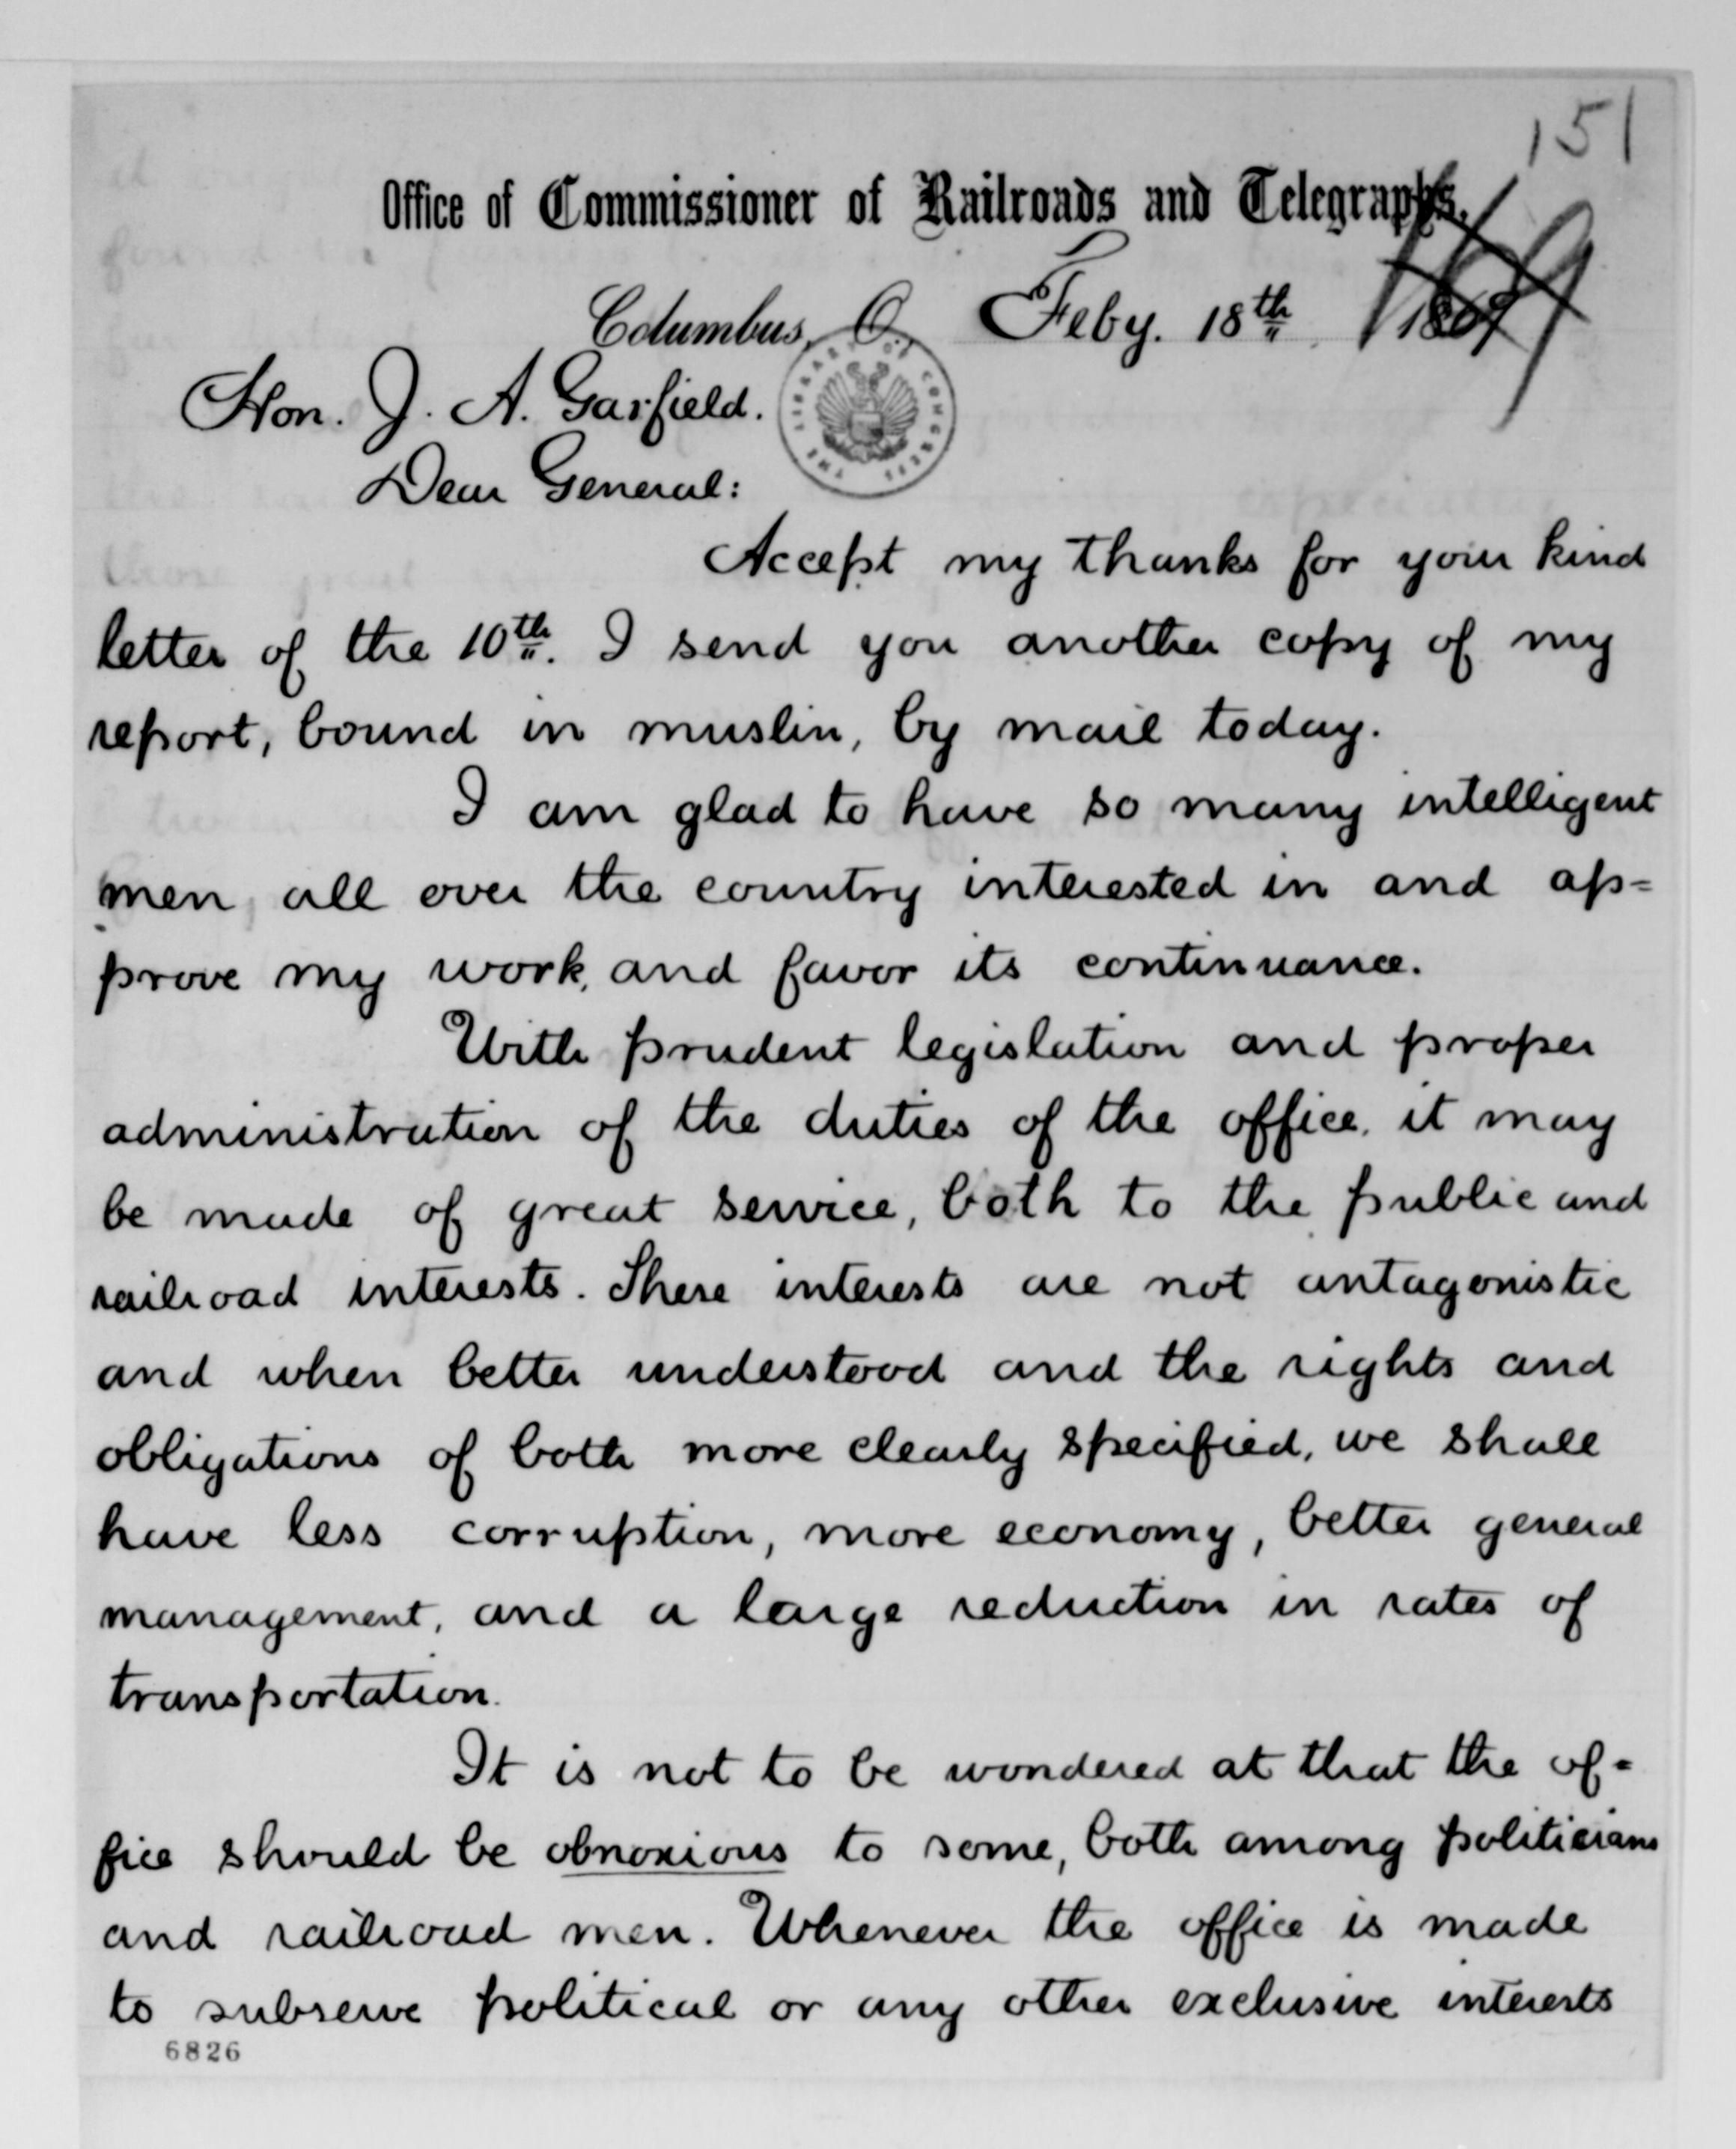 151
Office of Commissioner of Railroads and Telegraphs.
Columbus, O., Feby. 18th 1869
Hon. J. A. Garfield.
THE LIBRARY OF CONGRESS
Dear General:
Accept my thanks for your kind
letter of the 10th. I send you another copy of my
report, bound in muslin, by mail today.
I am glad to have so many intelligent
men, all over the country interested in and ap=
prove my work, and favor its continuance.
With prudent legislation and proper
administration of the duties of the office, it may
be made of great service, both to the public and
railroad interests. These interests are not antagonistic
and when better understood and the rights and
obligations of both more clearly specified, we shall
have less corruption, more economy, better general
management, and a large reduction in rates of
transportation.
It is not to be wondered at that the of=
fice should be obnoxious to some, both among politicians
and railroad men. Whenever the office is made
to subserve political or any other exclusive interests
6826